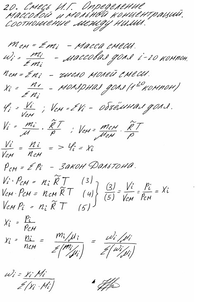 20. Смесь И.Г. Определение
массовой и мольной концентраций.
Соотношение между ними.
mсм = Σmi - масса смеси.
ωi = mi/mсм - массовая доля i-го компон.
nсм = Σni - число молей смеси.
xi = ni/nсм - мольная доля (i-го компон)
φi = Vi/Vсм ; Vсм = ΣVi - объёмная доля.
Vi = mi/μi · R̃T/p ; Vсм = mсм/μсм · R̃T/p
Vi/Vсм = ni/nсм => φi = xi
Pсм = ΣPi - закон Дальтона.
Vi·Pсм = ni R̃T (3)
Vсм·Pсм = nсм R̃T (4) (3)/(5) = Vi/Vсм = Pi/Pсм = xi
Vсм Pi = ni R̃T (5)
xi = Pi/Pсм
xi = ni/nсм = (mi/μi)/Σ(mi/μi) = (ωi/μi)/Σ(ωi/μi)
ωi = xi·Mi/Σ(xi·Mi)